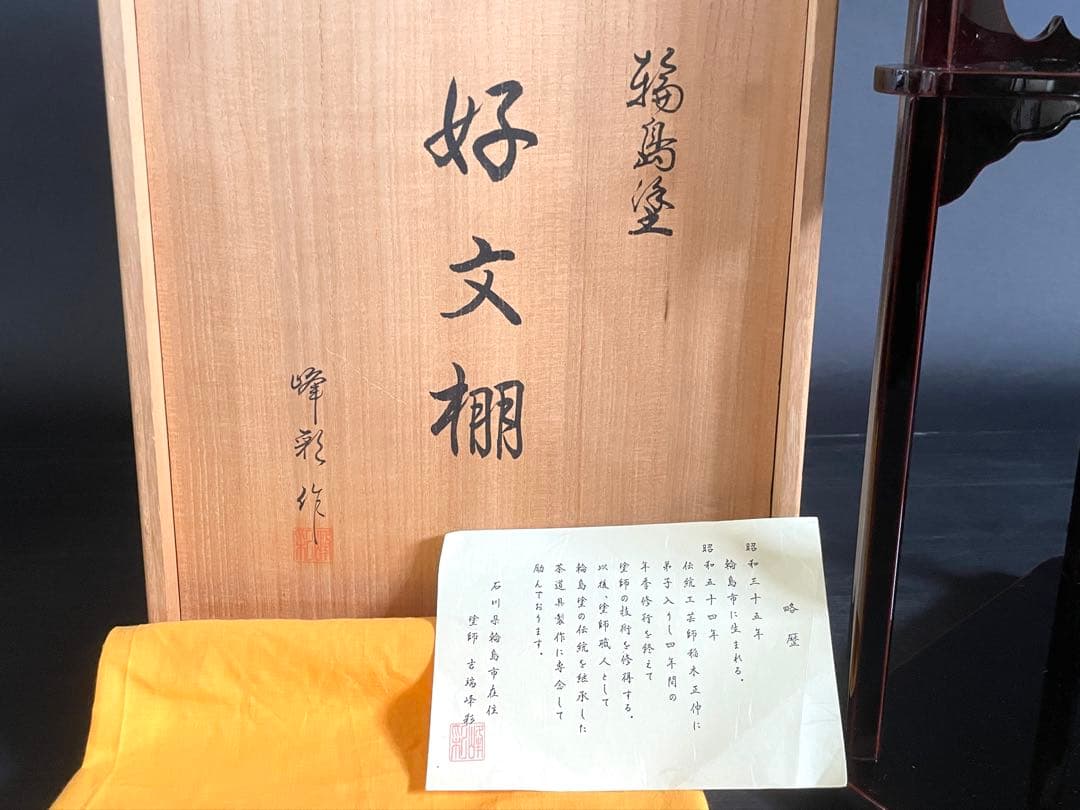 輪島塗
好文棚
峰彩作
略歴
昭和三十五年
輪島市に生まれる。
昭和五十四年
伝統工芸師稲木正仲に
弟子入りし四年間の
年季修行を終えて
塗師の技術を修得する。
以後、塗師職人として
輪島塗の伝統を継承した
茶道具製作に専念して
励んでおります。
石川県輪島市在住
塗師 吉端峰彩